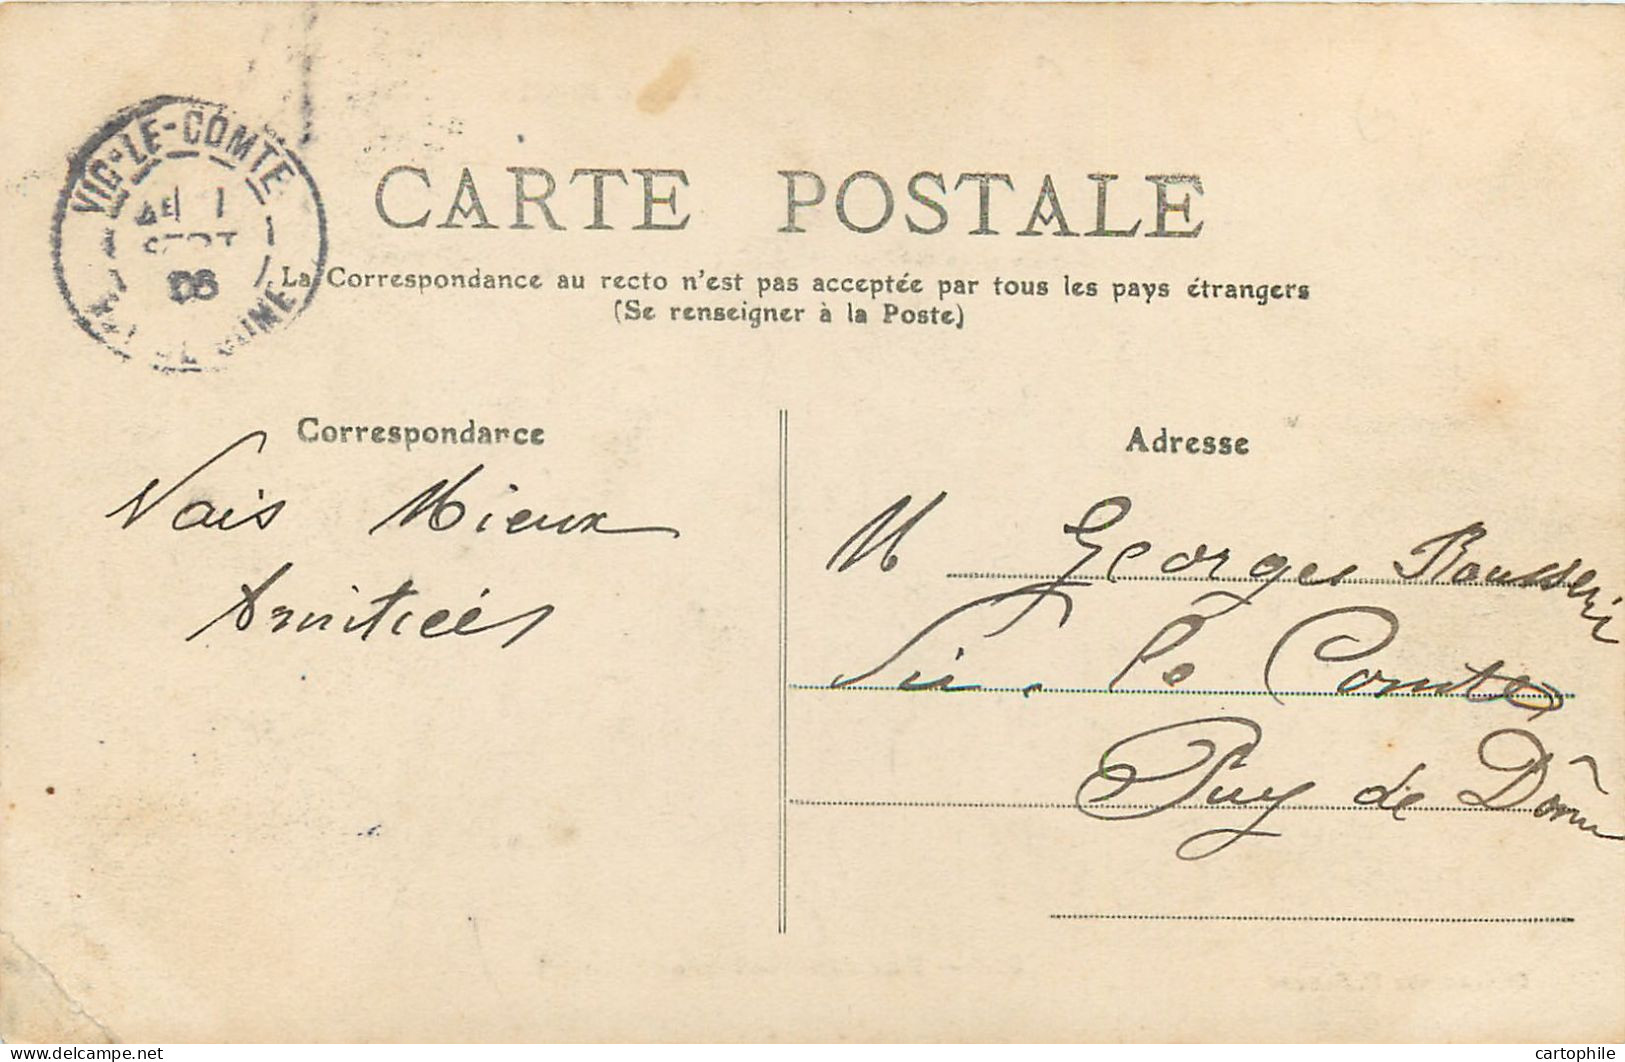 VIC-LE-COMTE
SEPT
06
CARTE POSTALE
La Correspondance au recto n'est pas acceptée par tous les pays étrangers
(Se renseigner à la Poste)
Correspondance
Vais Mieux
Amitiées
Adresse
M Georges
Vic. le Comte
Puy de Dôme
cartophile